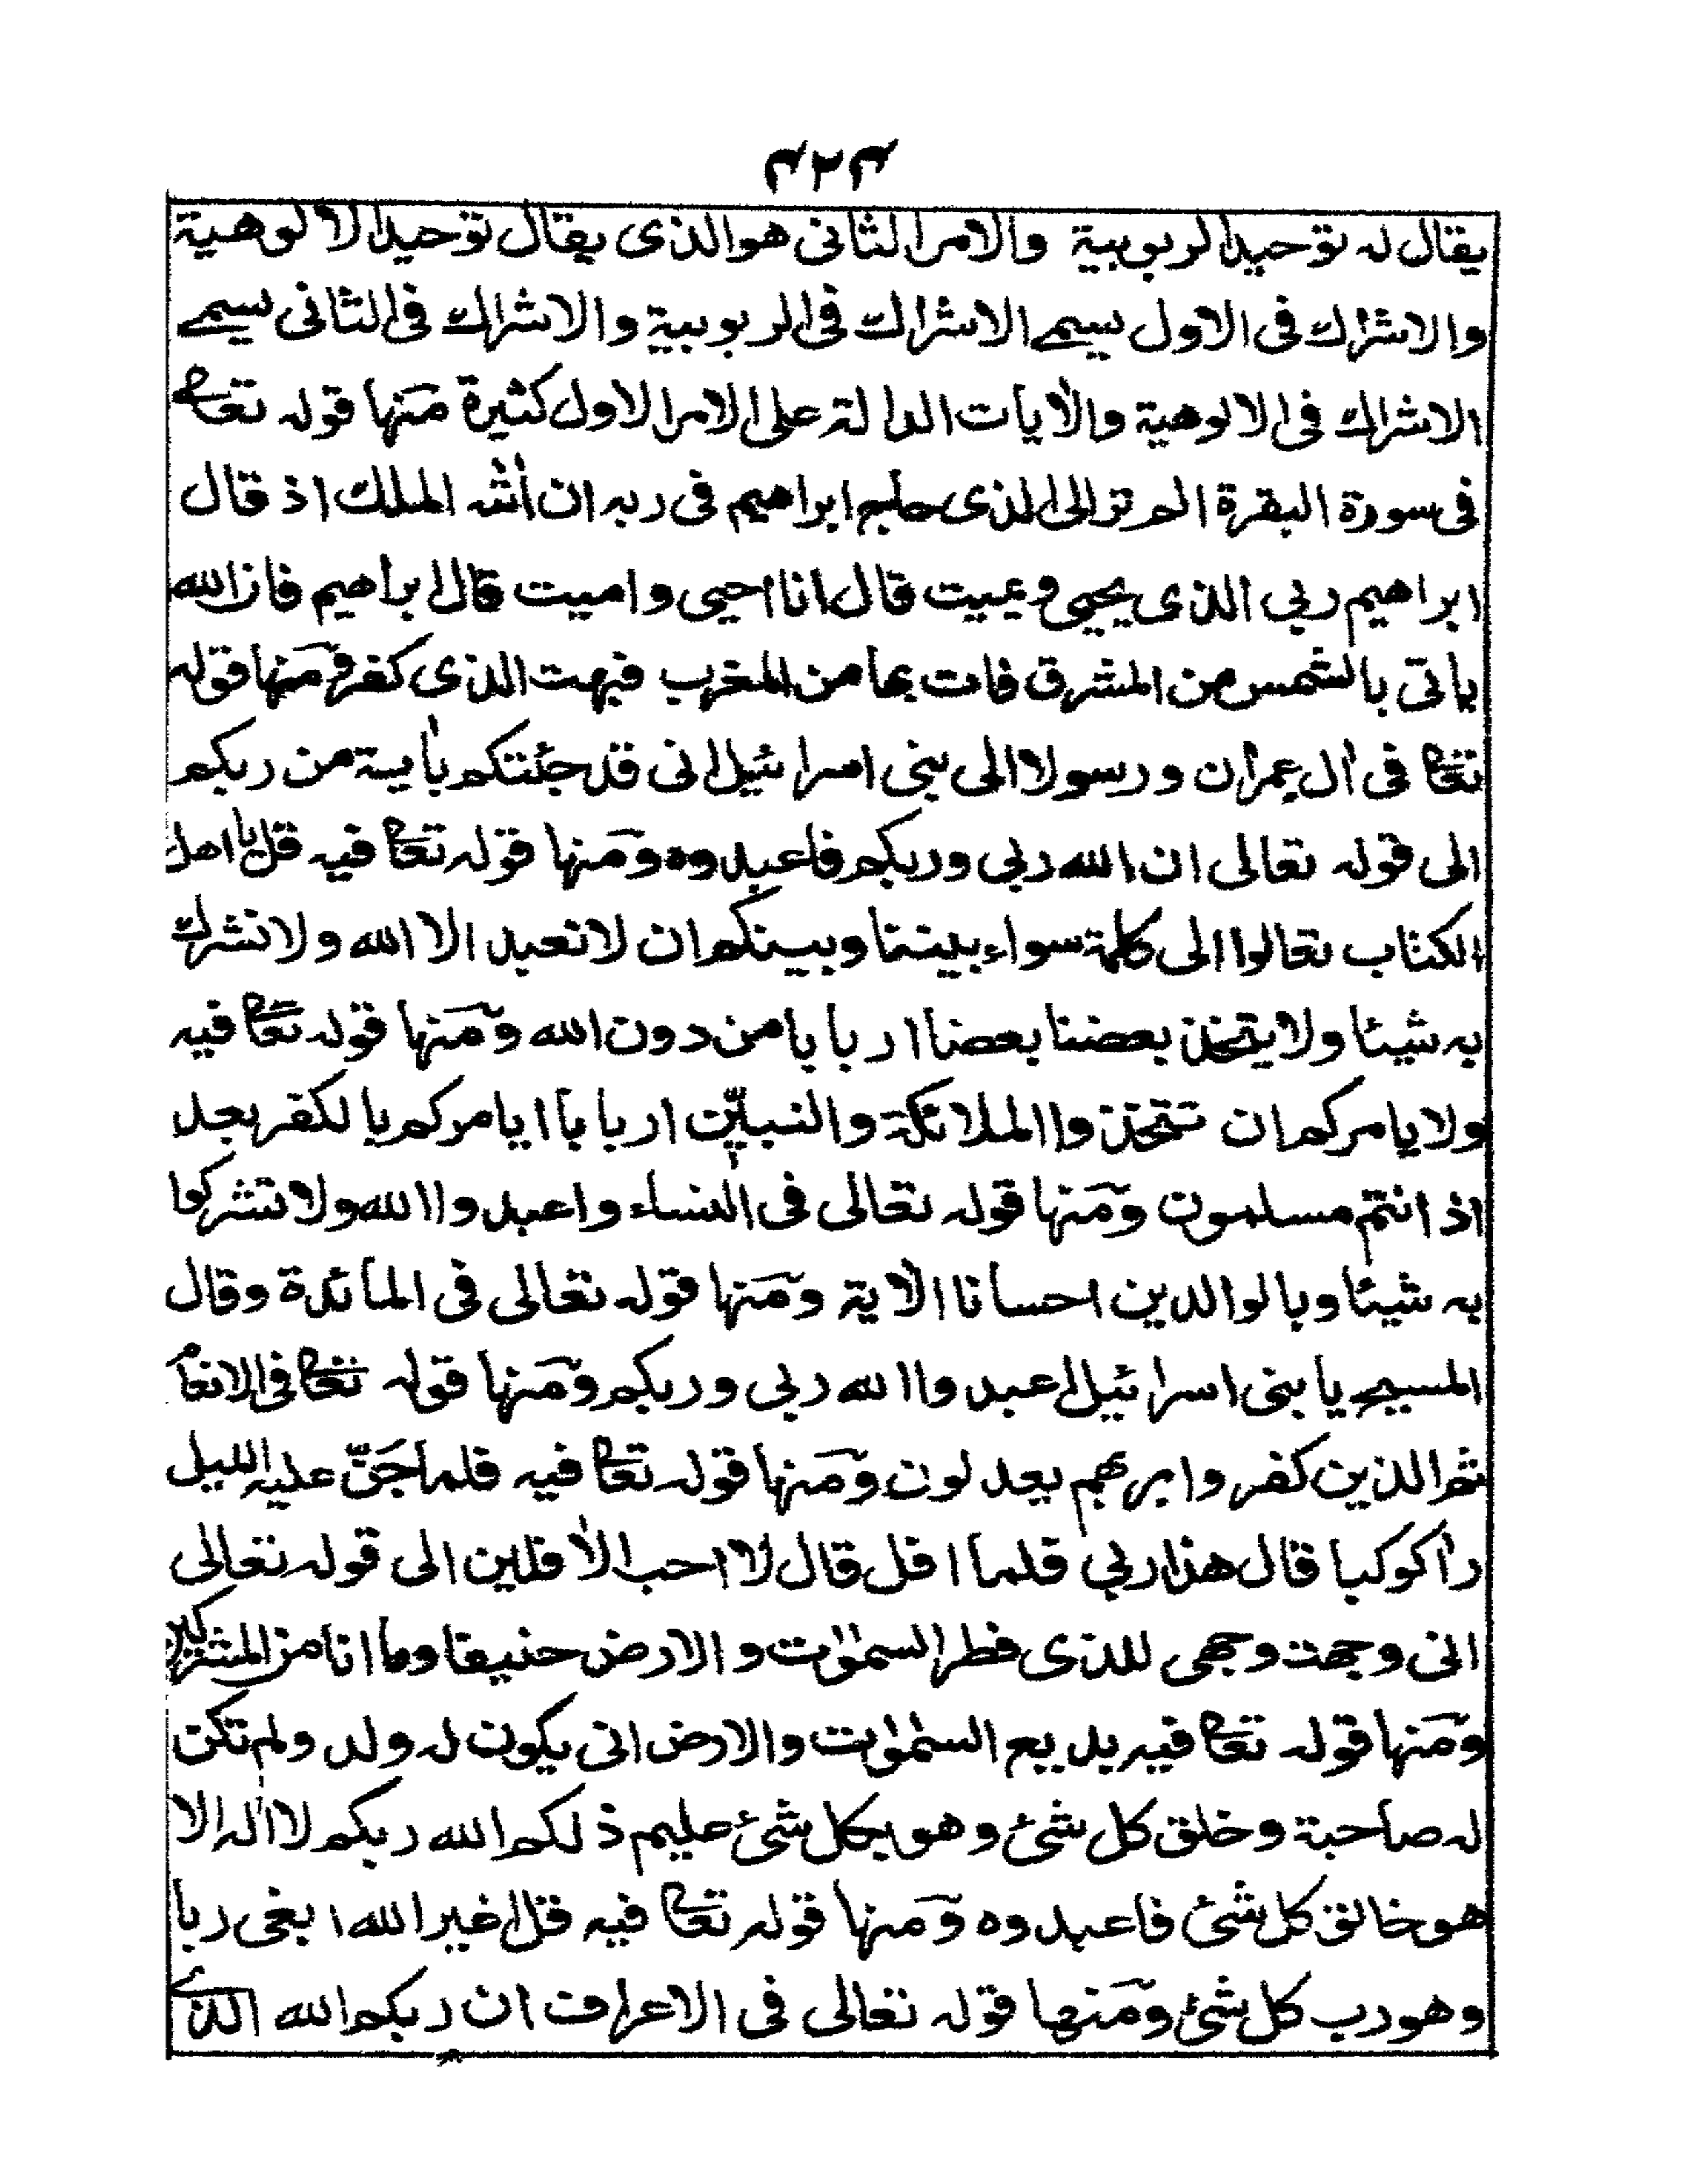 ۴۲۴
يقال له توحيد الربوبية والامر الثانى هو الذى يقال توحيد الالوهية
والاشراك فى الاول يسمے الاشراك فى الربوبية والاشراك فى الثانى يسمے
الاشراك فى الالوهية والاٰيات الدالة على الامر الاول كثيرة منها قوله تعا
فى سورة البقرة الم تر الى الذى حاج ابراهيم فى ربه ان اٰتٰه الله الملك اذ قال
ابراهيم ربى الذى يحيى ويميت قال انا احيى واميت قال ابراهيم فان الله
ياتى بالشمس من المشرق فات بها من المغرب فبهت الذى كفر ومنها قوله
تعا فى اٰل عمران ورسولا الى بنى اسرائيل انى قد جئتكم باٰية من ربكم
الى قوله تعالى ان الله ربى وربكم فاعبدوه ومنها قوله تعا فيه قل يا اهل
الكتاب تعالوا الى كلمة سواء بيننا وبينكم ان لا نعبد الا الله ولا نشرك
به شيئا ولا يتخذ بعضنا بعضا اربابا من دون الله ومنها قوله تعا فيه
ولا يامركم ان تتخذوا الملائكة والنبيّٖن اربابا ايامركم بالكفر بعد
اذ انتم مسلمون ومنها قوله تعالى فى النساء واعبدوا الله ولا تشركوا
به شيئا وبالوالدين احسانا الاٰية ومنها قوله تعالى فى المائدة وقال
المسيح يا بنى اسرائيل اعبدوا الله ربى وربكم ومنها قوله تعا فى الانعام
ثم الذين كفروا بربهم يعدلون ومنها قوله تعا فيه فلما جَنّ عليه الليل
راٰ كوكبا قال هذا ربي فلما افل قال لا احب الاٰفلين الى قوله تعالٰى
انى وجهت وجهى للذى فطر السمٰوٰت والارض حنيفا وما انا من المشركين
ومنها قوله تعا فيه بديع السمٰوٰت والارض انى يكون له ولد ولم تكن
له صاحبة وخلق كل شئ وهو بكل شئ عليم ذلكم الله ربكم لا الٰه الا
هو خالق كل شئ فاعبدوه ومنها قوله تعا فيه قل اغير الله ابغى ربا
وهو رب كل شئ ومنها قوله تعالى فى الاعراف ان ربكم الله الذے